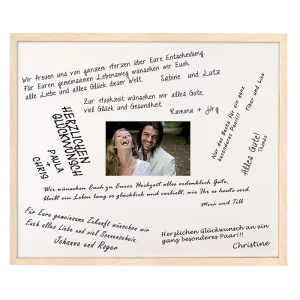 Wir freuen uns von ganzem Herzen über Eure Entscheidung.
Für Euren gemeinsamen Lebensweg wünschen wir Euch
alle Liebe und alles Glück dieser Welt. Sabine und Lutz
Zur Hochzeit wünschen wir alles Gute,
viel Glück und Gesundheit.
Ramona + Jörg
HERZLICHEN
GLÜCKWUNSCH
PAULA
+
CHRIS
Nur das Beste für ein ganz
besonderes Paar!!! Tibor und Lisa
Alles Gute!
Thomas
Wir wünschen Euch zu Eurer Hochzeit alles erdenklich Gute,
bleibt ein Leben lang so glücklich und verliebt, wie Ihr es heute seid.
Mira und Till
Für Eure gemeinsame Zukunft wünschen wir
Euch alles Liebe und viel Sonnenschein.
Johanna und Roger
Herzlichen Glückwunsch an ein
ganz besonderes Paar!!!
Christine